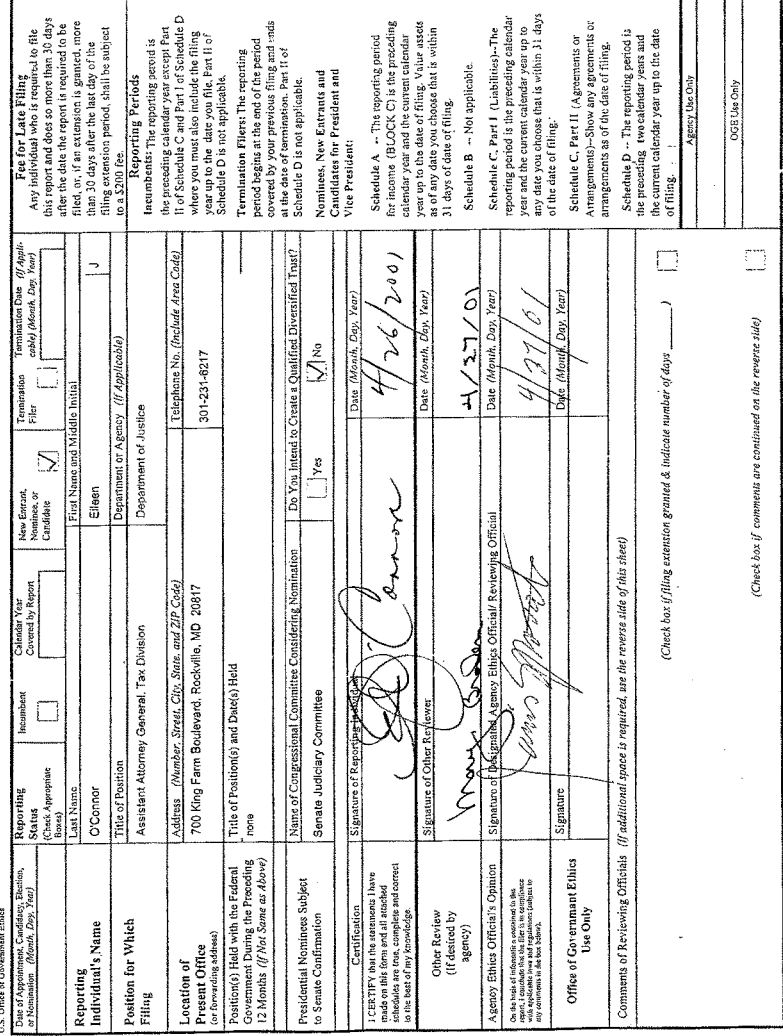 U.S. Office of Government Ethics
Date of Appointment, Candidacy, Election,
or Nomination (Month, Day, Year)
Reporting
Status
(Check Appropriate
Boxes)
Incumbent
Calendar Year
Covered by Report
New Entrant,
Nominee, or
Candidate
Termination
Filer
Termination Date (If Appli-
cable) (Month, Day, Year)
Reporting
Individual's Name
Last Name
O'Connor
First Name and Middle Initial
Eileen
J
Position for Which
Filing
Title of Position
Assistant Attorney General, Tax Division
Department or Agency (If Applicable)
Department of Justice
Location of
Present Office
(or forwarding address)
Address (Number, Street, City, State, and ZIP Code)
700 King Farm Boulevard, Rockville, MD 20817
Telephone No. (Include Area Code)
301-231-6217
Position(s) Held with the Federal
Government During the Preceding
12 Months (If Not Same as Above)
Title of Position(s) and Date(s) Held
none
Presidential Nominees Subject
to Senate Confirmation
Name of Congressional Committee Considering Nomination
Senate Judiciary Committee
Do You Intend to Create a Qualified Diversified Trust?
Yes
No
Certification
I CERTIFY that the statements I have
made on this form and all attached
schedules are true, complete and correct
to the best of my knowledge.
Signature of Reporting Individual
O'Connor
Date (Month, Day, Year)
4/26/2001
Other Review
(If desired by
agency)
Signature of Other Reviewer
Mary Braden
Date (Month, Day, Year)
4/27/01
Agency Ethics Official's Opinion
On the basis of information contained in this
report, I conclude that the filer is in compliance
with applicable laws and regulations (subject to
any comments in the box below).
Signature of Designated Agency Ethics Official/ Reviewing Official
Date (Month, Day, Year)
4/27/01
Office of Government Ethics
Use Only
Signature
Date (Month, Day, Year)
Comments of Reviewing Officials (If additional space is required, use the reverse side of this sheet)
(Check box if filing extension granted & indicate number of days ______)
(Check box if comments are continued on the reverse side)
Fee for Late Filing
Any individual who is required to file
this report and does so more than 30 days
after the date the report is required to be
filed, or, if an extension is granted, more
than 30 days after the last day of the
filing extension period, shall be subject
to a $200 fee.
Reporting Periods
Incumbents: The reporting period is
the preceding calendar year except Part
II of Schedule C and Part I of Schedule D
where you must also include the filing
year up to the date you file. Part II of
Schedule D is not applicable.
Termination Filers: The reporting
period begins at the end of the period
covered by your previous filing and ends
at the date of termination. Part II of
Schedule D is not applicable.
Nominees, New Entrants and
Candidates for President and
Vice President:
Schedule A -- The reporting period
for income (BLOCK C) is the preceding
calendar year and the current calendar
year up to the date of filing. Value assets
as of any date you choose that is within
31 days of date of filing.
Schedule B -- Not applicable.
Schedule C, Part I (Liabilities)--The
reporting period is the preceding calendar
year and the current calendar year up to
any date you choose that is within 31 days
of the date of filing.
Schedule C, Part II (Agreements or
Arrangements)--Show any agreements or
arrangements as of the date of filing.
Schedule D -- The reporting period is
the preceding two calendar years and
the current calendar year up to the date
of filing.
Agency Use Only
OGE Use Only